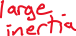 large
inertia